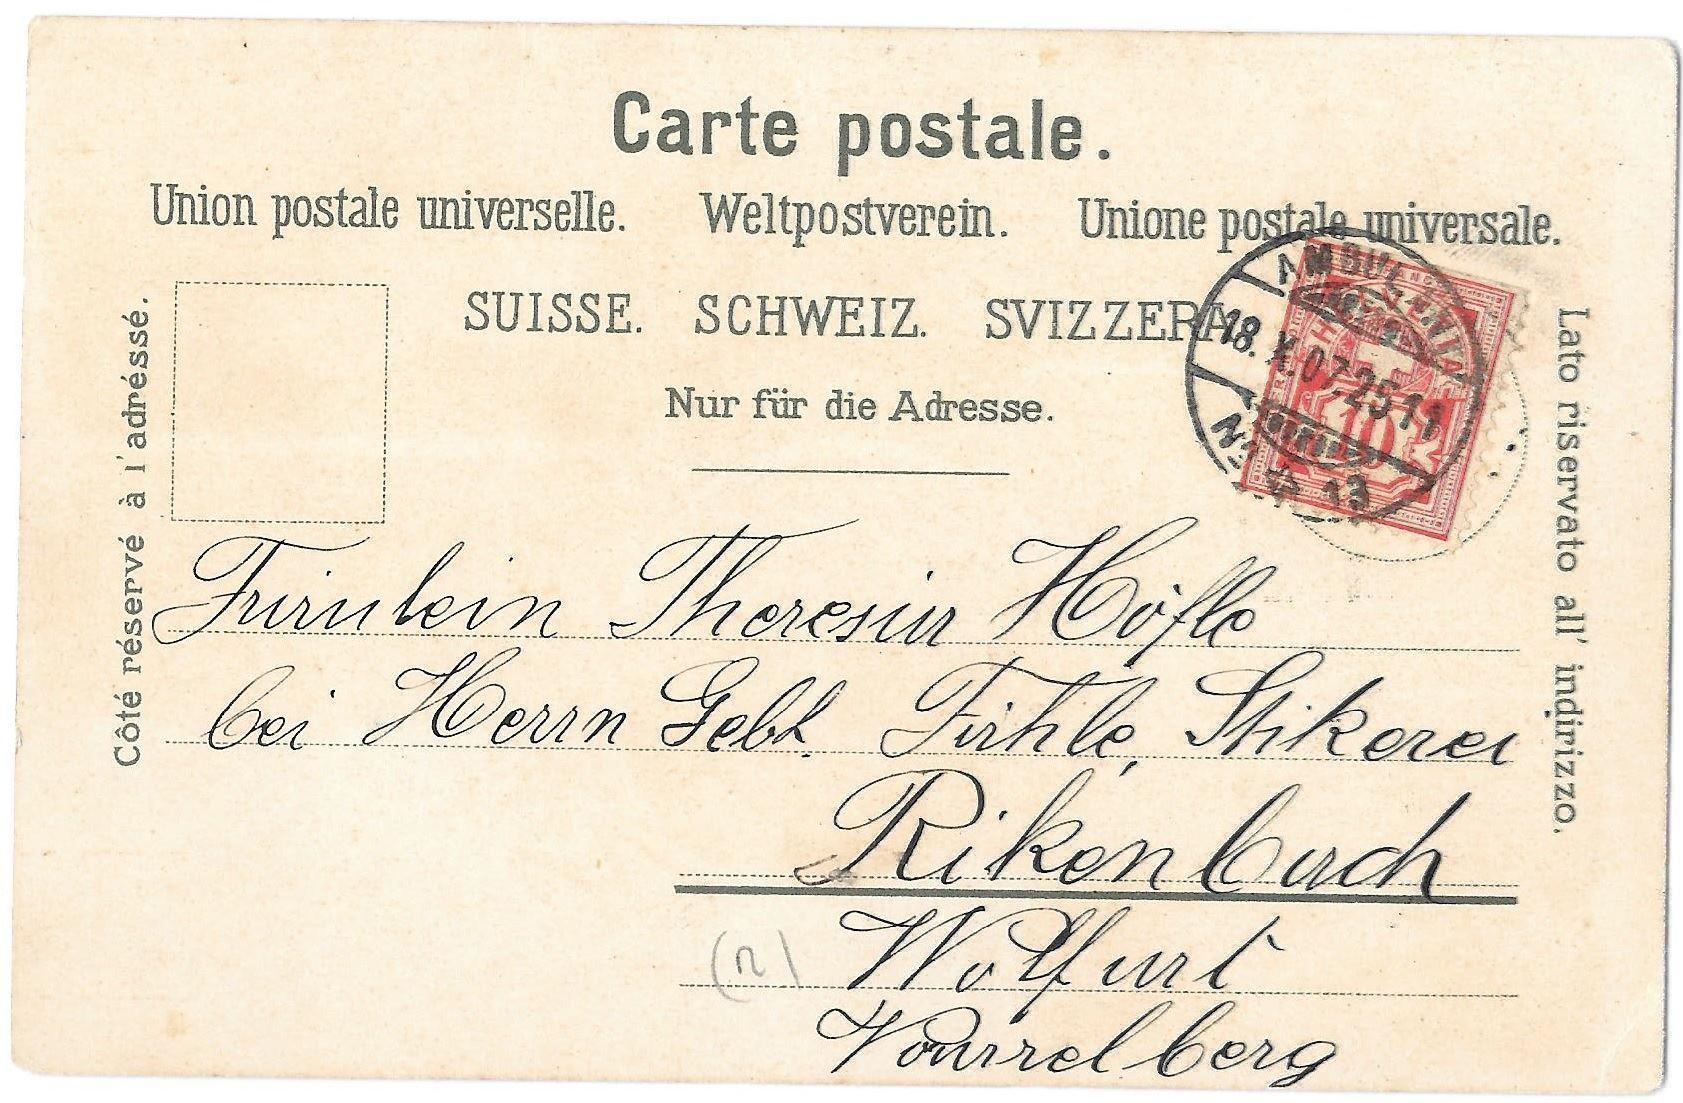 Carte postale.
Union postale universelle. Weltpostverein. Unione postale universale.
SUISSE. SCHWEIZ. SVIZZERA.
Nur für die Adresse.
Côté réservé à l'adréssé.
Lato riservato all' indirizzo.
AMBULANT
18.X.07-25 11
No 13
10
Fräulein Theresia Höfle
bei Herrn Gebr. Stikerei
Rikenbach
Wolfurt
Vourrelberg